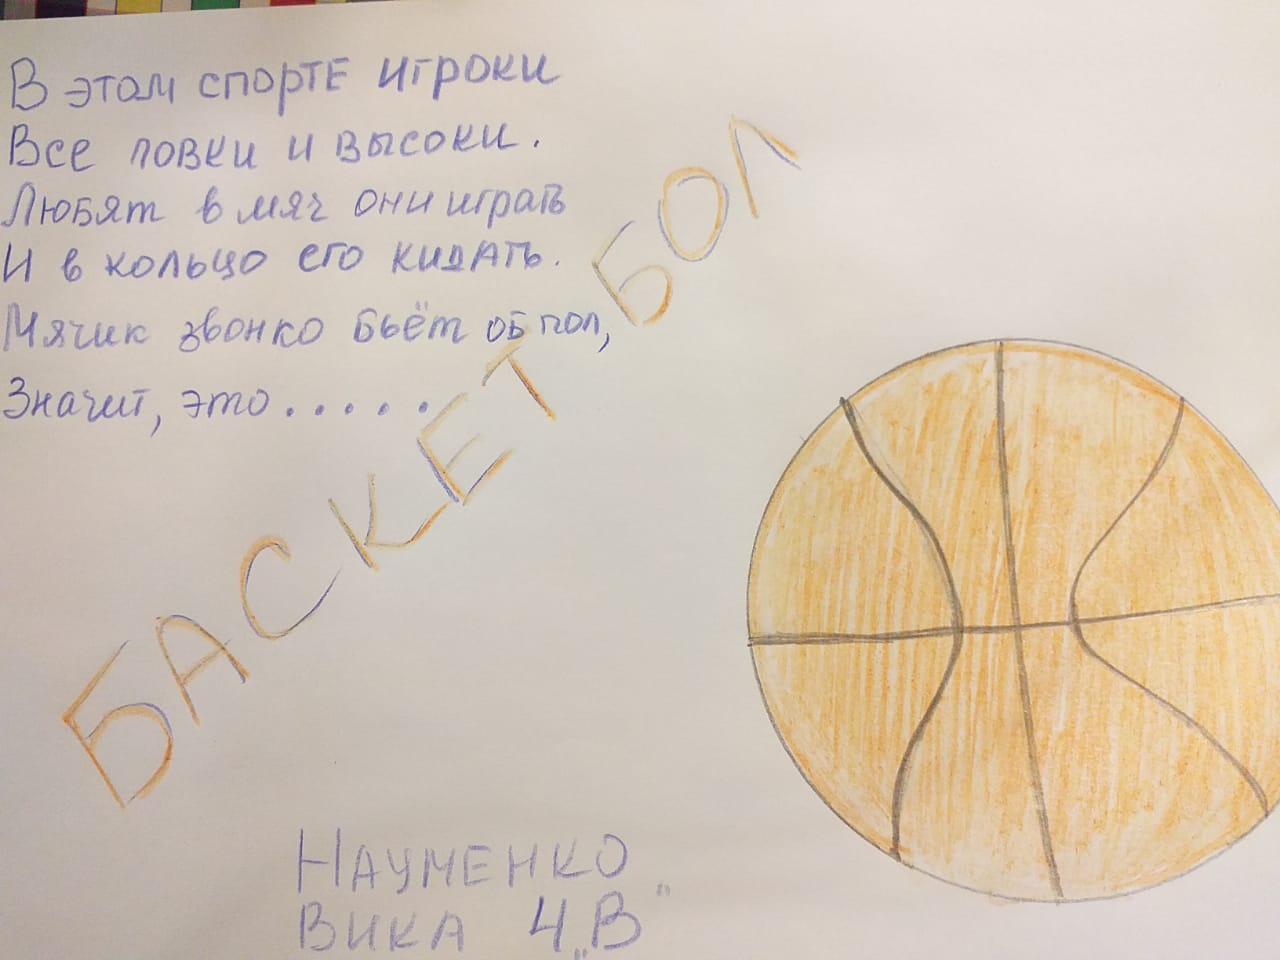 В этом спорте игроки
Все ловки и высоки.
Любят в мяч они играть
И в кольцо его кидать.
Мячик звонко бьёт об пол,
Значит, это.....
БАСКЕТБОЛ
НАУМЕНКО
ВИКА 4 „В"